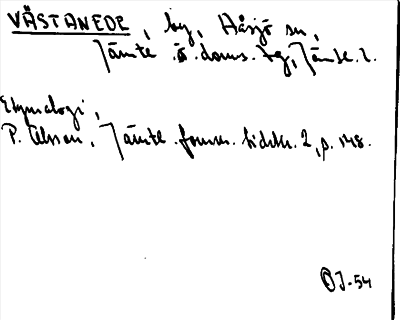 VÄSTANEDE, by, Håsjö sn,
Jämtl. ö. doms. hg, Jämtl. l.
Etymologi,
P. Olsson, Jämtl. fornm. tidskr. 2, p. 148.
OJ-54